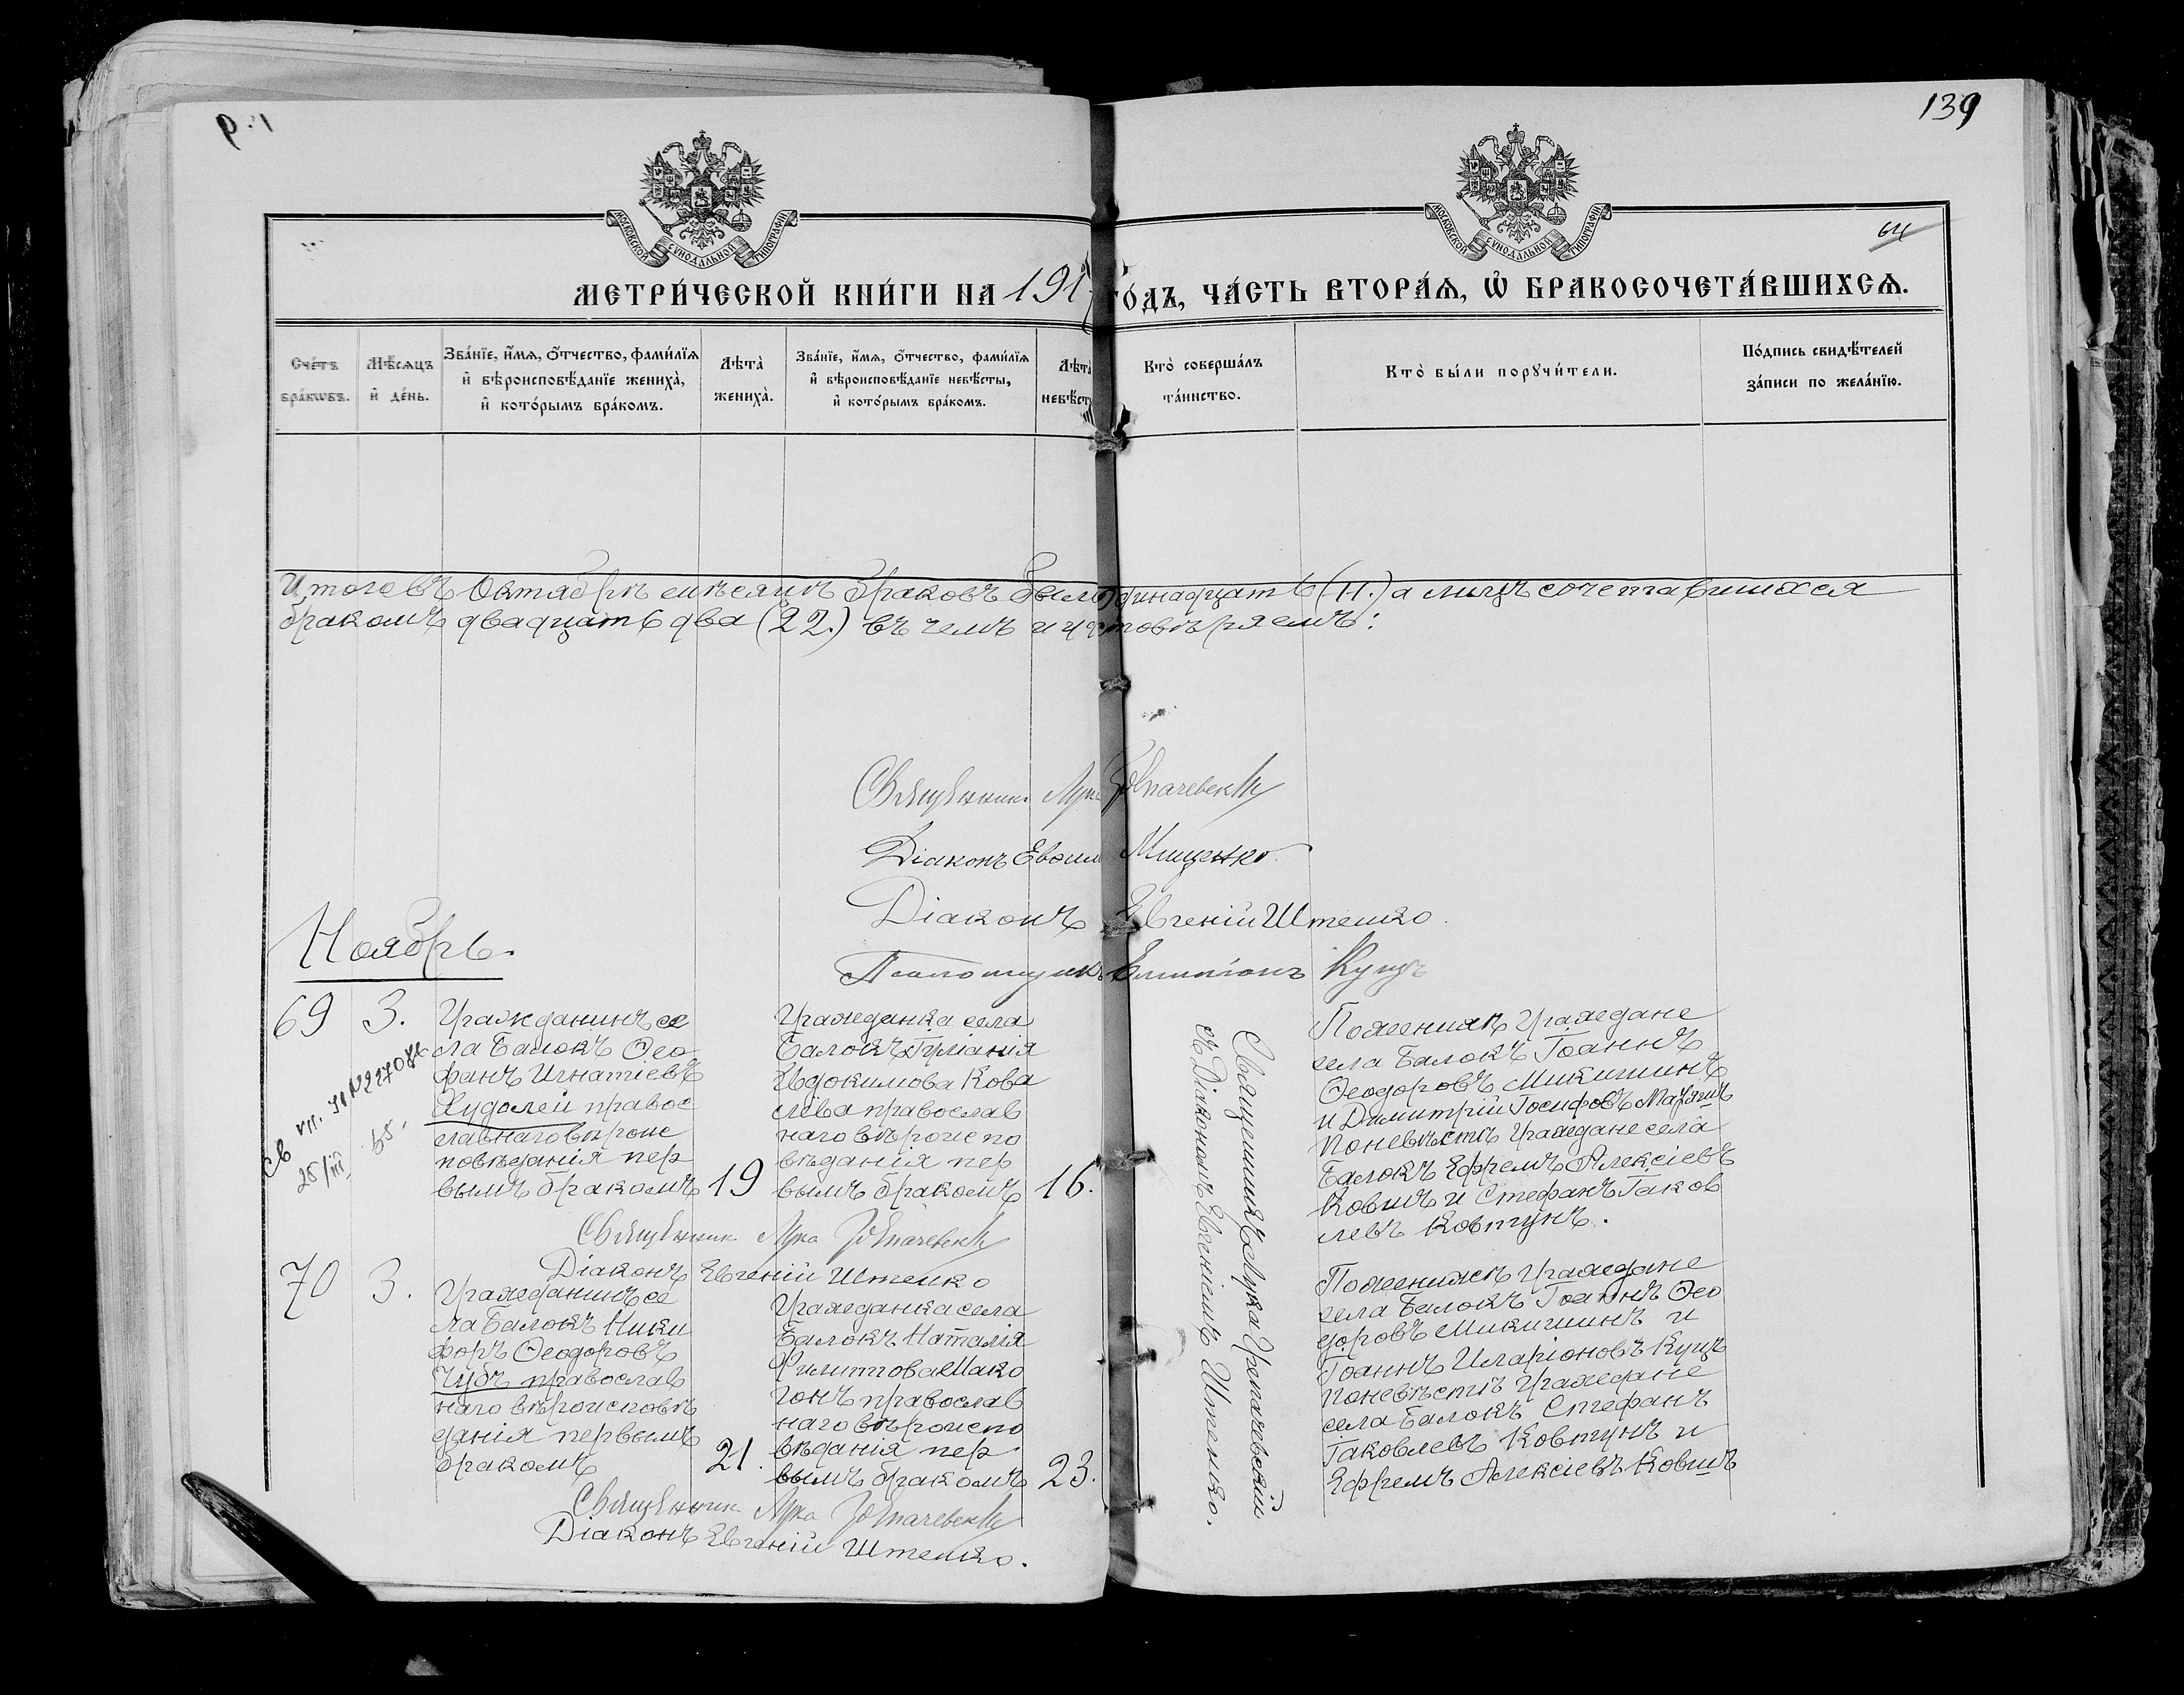 139
МОСКОВСКОЙ СѴНОДАЛЬНОЙ ТИПОГРАФІИ
МОСКОВСКОЙ СѴНОДАЛЬНОЙ ТИПОГРАФІИ
64
МЕТРИ́ЧЕСКОЙ КНИ́ГИ НА 191 ГО́ДЪ, ЧА́СТЬ ВТОРА́Ѧ, Ѡ҆ БРАКОСОЧЕТА́ВШИХСѦ.
Сче́тъ бра́кѡвъ.
Мѣ́сѧцъ и҆ де́нь.
Зва́нїе, и҆́мѧ, ѻ҆́тчество, фами́лїѧ
и҆ вѣроисповѣ́данїе жениха̀,
и҆ кото́рымъ бра́комъ.
Лѣта̀
жениха̀.
Зва́нїе, и҆́мѧ, ѻ҆́тчество, фами́лїѧ
и҆ вѣроисповѣ́данїе невѣ́сты,
и҆ кото́рымъ бра́комъ.
Лѣта̀
невѣ́ст
Кто̀ соверша́лъ
та́инство.
Кто̀ бы́ли порꙋчи́тели.
По́дпись свидѣ́телей
за́писи по жела́нїю.
Итого въ Октябрѣ мѣсяцѣ браковъ было одинадцать (11.) а лицъ сочетавшихся
бракомъ двадцать два (22.) въ чемъ и удостовѣряемъ:
Священникъ Лука
Діаконъ Евѳим Мищенко
Діаконъ Евгеній Штепко.
Псаломщикъ Куцъ
Ноябрь.
69
3.
Гражданинъ се
ла Балокъ Ѳео
фанъ Игнатіевъ
Худолей правос
лавнаго вѣроис
повѣданія пер
вымъ бракомъ
19
Гражданка села
Балокъ Гликерія
Евдокимова Кова
лева православ
наго вѣроиспо
вѣданія пер
вымъ бракомъ
16.
Священникъ Лука
съ Діакономъ Евгеніемъ Штепко.
По женихѣ Граждане
села Балокъ Іоаннъ
Ѳеодоровъ Микитинъ
и Димитрій Іосифовъ
по невѣстѣ Граждане села
Балокъ Ефремъ Алексіевъ
Ковшъ и Стефанъ Іаков
левъ Ковтунъ.
Священникъ Лука
Діаконъ Евгеній Штепко
70
3.
Гражданинъ се
ла Балокъ Ники
форъ Ѳеодоровъ
Чубъ православ
наго вѣроисповѣ
данія первымъ
бракомъ
21.
Гражданка села
Балокъ Наталія
Филиппова Мако
гонъ православ
наго вѣроиспо
вѣданія пер
вымъ бракомъ
23.
По женихѣ Граждане
села Балокъ Іоаннъ Ѳео
доровъ Микитинъ и
Іоаннъ Иларіоновъ Куцъ
по невѣстѣ Граждане
села Балокъ Стефанъ
Іаковлевъ Ковтунъ и
Ефремъ Алексіевъ Ковшъ
Священникъ Лука
Діаконъ Евгеній Штепко.